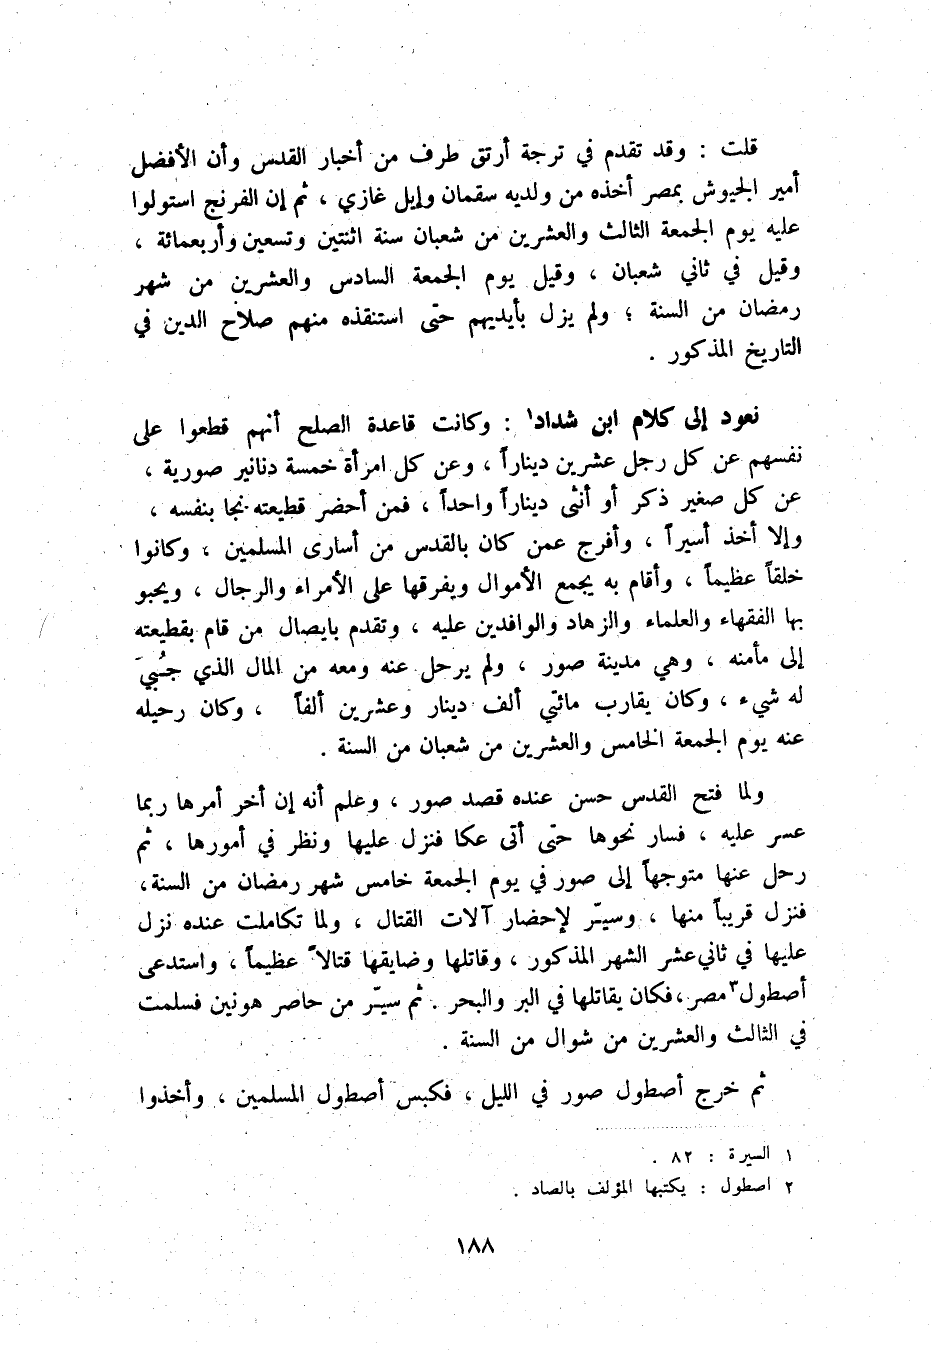 قلت : وقد تقدم في ترجة أرتق طرف من أخبار القدس وأن الأفضل
أمير الجيوش بمصر أخذه من ولديه سقمان وإيل غازي ، ثم إن الفرنج استولوا
عليه يوم الجمعة الثالث والعشرين من شعبان سنة اثنتين وتسعين وأربعمائة ،
وقيل في ثاني شعبان ، وقيل يوم الجمعة السادس والعشرين من شهر
رمضان من السنة ؛ ولم يزل بأيديهم حتى استنقذه منهم صلاح الدين في
التاريخ المذكور .
نعود إلى كلام ابن شداد١ : وكانت قاعدة الصلح أنهم قطعوا على
نفسهم عن كل رجل عشرين ديناراً ، وعن كل امرأة خمسة دنانير صورية ،
عن كل صغير ذكر أو أنثى ديناراً واحداً ، فمن أحضر قطيعته نجا بنفسه ،
وإلا أخذ أسيراً ، وأفرج عمن كان بالقدس من أسارى المسلمين ، وكانوا
خلقاً عظيماً ، وأقام به يجمع الأموال ويفرقها على الأمراء والرجال ، ويحبو
بها الفقهاء والعلماء والزهاد والوافدين عليه ، وتقدم بايصال من قام بقطيعته
إلى مأمنه ، وهي مدينة صور ، ولم يرحل عنه ومعه من المال الذي جُبيَ
له شيء ، وكان يقارب مائتي ألف دينار وعشرين ألفاً ، وكان رحيله
عنه يوم الجمعة الخامس والعشرين من شعبان من السنة .
ولما فتح القدس حسن عنده قصد صور ، وعلم أنه إن أخر أمرها ربما
عسر عليه ، فسار نحوها حتى أتى عكا فنزل عليها ونظر في أمورها ، ثم
رحل عنها متوجهاً إلى صور في يوم الجمعة خامس شهر رمضان من السنة،
فنزل قريباً منها ، وسيّر لإحضار آلات القتال ، ولما تكاملت عنده نزل
عليها في ثاني عشر الشهر المذكور ، وقاتلها وضايقها قتالاً عظيماً ، واستدعى
أصطول٣ مصر ،فكان يقاتلها في البر والبحر . ثم سيّر من حاصر هونين فسلمت
في الثالث والعشرين من شوال من السنة .
ثم خرج أصطول صور في الليل ، فكبس أصطول المسلمين ، وأخذوا
١ السيرة : ٨٢ .
٢ اصطول : يكتبها المؤلف بالصاد .
١٨٨